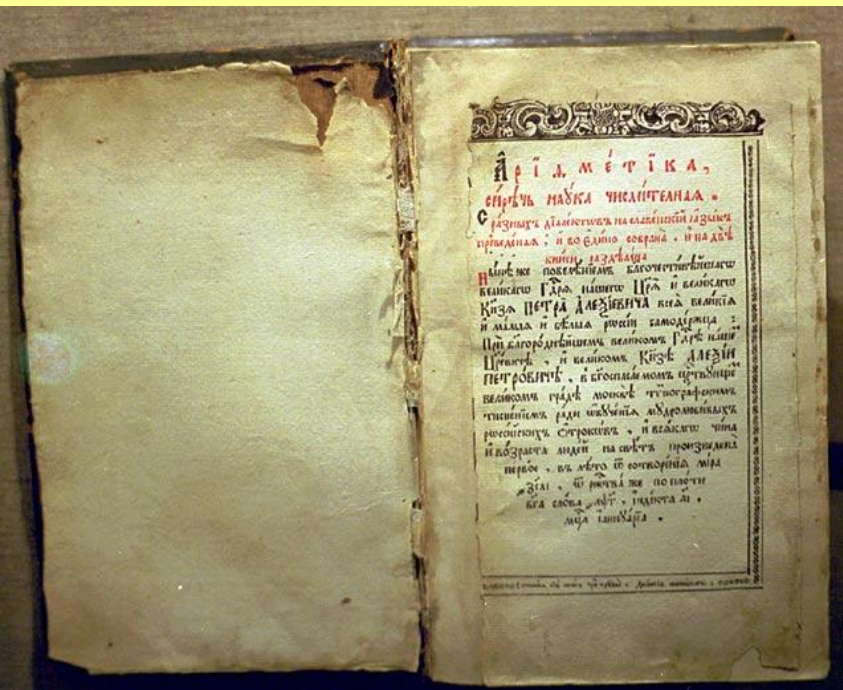 А҆ріѳмети́ка,
си́рѣчь наꙋ́ка числи́телнаѧ.
С ра́зныхъ дїале́ктѡвъ на славе́нскїй ꙗ҆зы́къ
преведе́наѧ, и҆ во є҆ди́но собрана̀, и҆ на двѣ̀
кни́ги раздѣлена̀
Ны́нѣ же повелѣ́нїемъ благочести́вѣйшагѡ
вели́кагѡ Гдⷭ҇рѧ на́шегѡ Цр҃ѧ̀ и҆ вели́кагѡ
Кнз҃ѧ ПЕТРА̀ АЛЕѮІ́ЕВИЧА всеѧ̀ вели́кїѧ
и҆ ма́лыѧ и҆ бѣ́лыѧ рѡссі́и самоде́ржца :
При бл҃горо́днѣйшемъ вели́комъ Гдⷭ҇рѣ на́шемъ
Цр҃е́вичѣ, и҆ вели́комъ Кнз҃ѣ АЛЕѮІ́И
ПЕТРО́ВИЧѢ, в бг҃оспаса́емомъ црⷭ҇твꙋющемъ
вели́комъ гра́дѣ москвѣ̀ тѷпогра́фскимъ
тисне́нїемъ ра́ди ѡ҆бꙋче́нїѧ мꙋдролюби́выхъ
рѡссі́йскихъ ѻ҆́трокѡвъ, и҆ всѧ́кагѡ чи́на
и҆ во́зраста люде́й на свѣ́тъ произведена̀
пе́рвое, въ лѣ́то ѿ сотворе́нїѧ мі́ра
҂зс҃аі, ѿ ржⷭ҇тва̀ же по пло́ти
бг҃а сло́ва ҂аѱ҃г, і҆нді́кта аі.
мцⷭ҇а і҆аннꙋа́рїа.